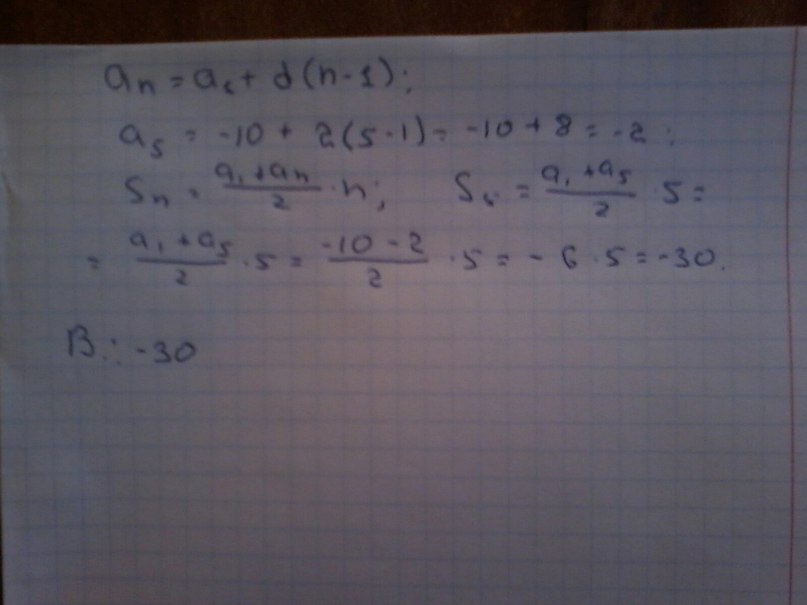 aₙ = a₁ + d(n-1);
a₅ = -10 + 2(5-1) = -10 + 8 = -2;
Sₙ = (a₁ + aₙ)/2 · n; S₅ = (a₁ + a₅)/2 · 5 =
= (a₁ + a₅)/2 · 5 = (-10 - 2)/2 · 5 = -6 · 5 = -30.
В.: -30